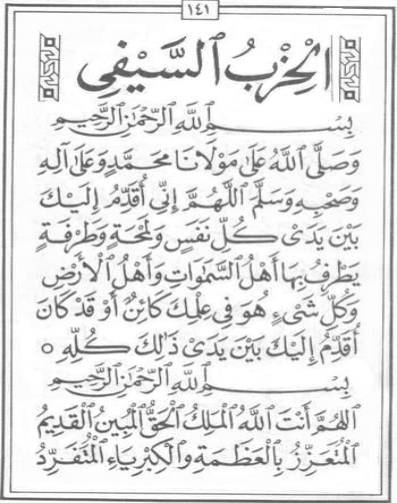 ١٤١
اَلْحِزْبُ السَّيْفِى
بِسْمِ اللَّهِ الرَّحْمٰنِ الرَّحِيمِ
وَصَلَّى اللَّهُ عَلَى مَوْلَانَا مُحَمَّدٍ وَعَلَى آلِهِ
وَصَحْبِهِ وَسَلَّمَ اَللَّهُمَّ إِنِّى أُقَدِّمُ إِلَيْكَ
بَيْنَ يَدَىْ كُلِّ نَفَسٍ وَلَمْحَةٍ وَطَرْفَةٍ
يَطْرِفُ بِهَا أَهْلُ السَّمٰوَاتِ وَأَهْلُ الْأَرْضِ
وَكُلِّ شَىْءٍ هُوَ فِى عِلْمِكَ كَائِنٌ أَوْ قَدْ كَانَ
أُقَدِّمُ إِلَيْكَ بَيْنَ يَدَىْ ذٰلِكَ كُلِّهِ ○
بِسْمِ اللَّهِ الرَّحْمٰنِ الرَّحِيمِ
اَللَّهُمَّ أَنْتَ اللَّهُ الْمَلِكُ الْحَقُّ الْمُبِينُ الْقَدِيمُ
الْمُتَعَزِّزُ بِالْعَظَمَةِ وَالْكِبْرِيَاءِ الْمُتَفَرِّدُ